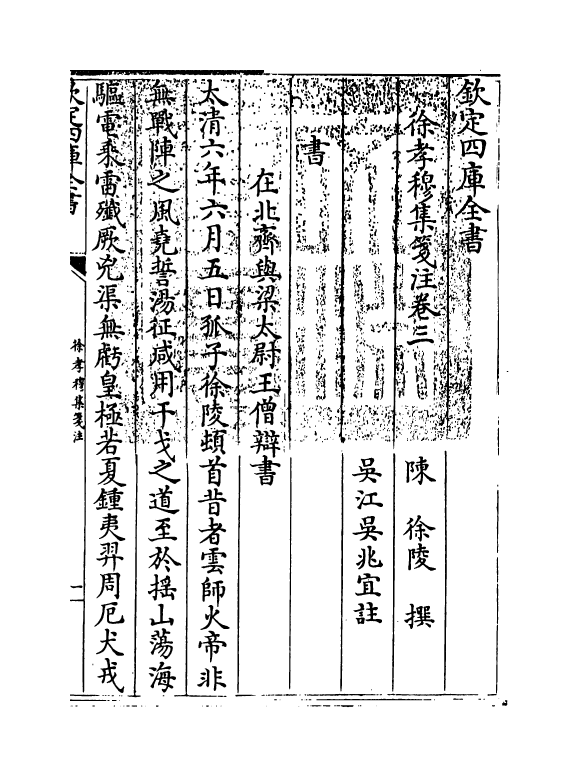 欽定四庫全書
徐孝穆集箋注卷三
陳 徐陵 撰
吳江吳兆宜註
書
在北齊與梁太尉王僧辯書
太清六年六月五日孤子徐陵頓首昔者雲師火帝非
無戰陣之風堯誓湯征咸用干戈之道至於搖山蕩海
驅電乘雷殲厥兇渠無虧皇極若夏鍾夷羿周厄犬戎
欽定四庫全書
徐孝穆集箋注
一